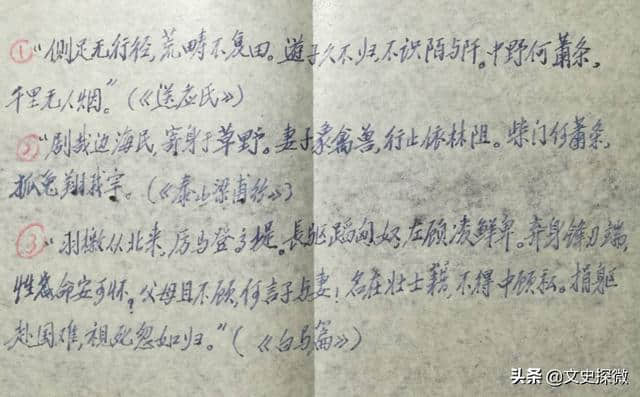 ①“侧足无行径,荒畴不复田。遊子久不归,不识陌与阡。中野何萧条,
千里无人烟。”(《送应氏》)
②“剧哉边海民,寄身于草野。妻子象禽兽,行止依林阻。柴门何萧条,
狐兔翔我宇。(《泰山梁甫行》)
③“羽檄从北来,厉马登高堤。長驱蹈匈奴,左顾凌鲜卑。弃身锋刃端,
性命安可怀?父母且不顾,何言子与妻!名在壮士籍,不得中顾私。捐躯
赴国难,视死忽如归。”(《白马篇》)
头条 @文史探微